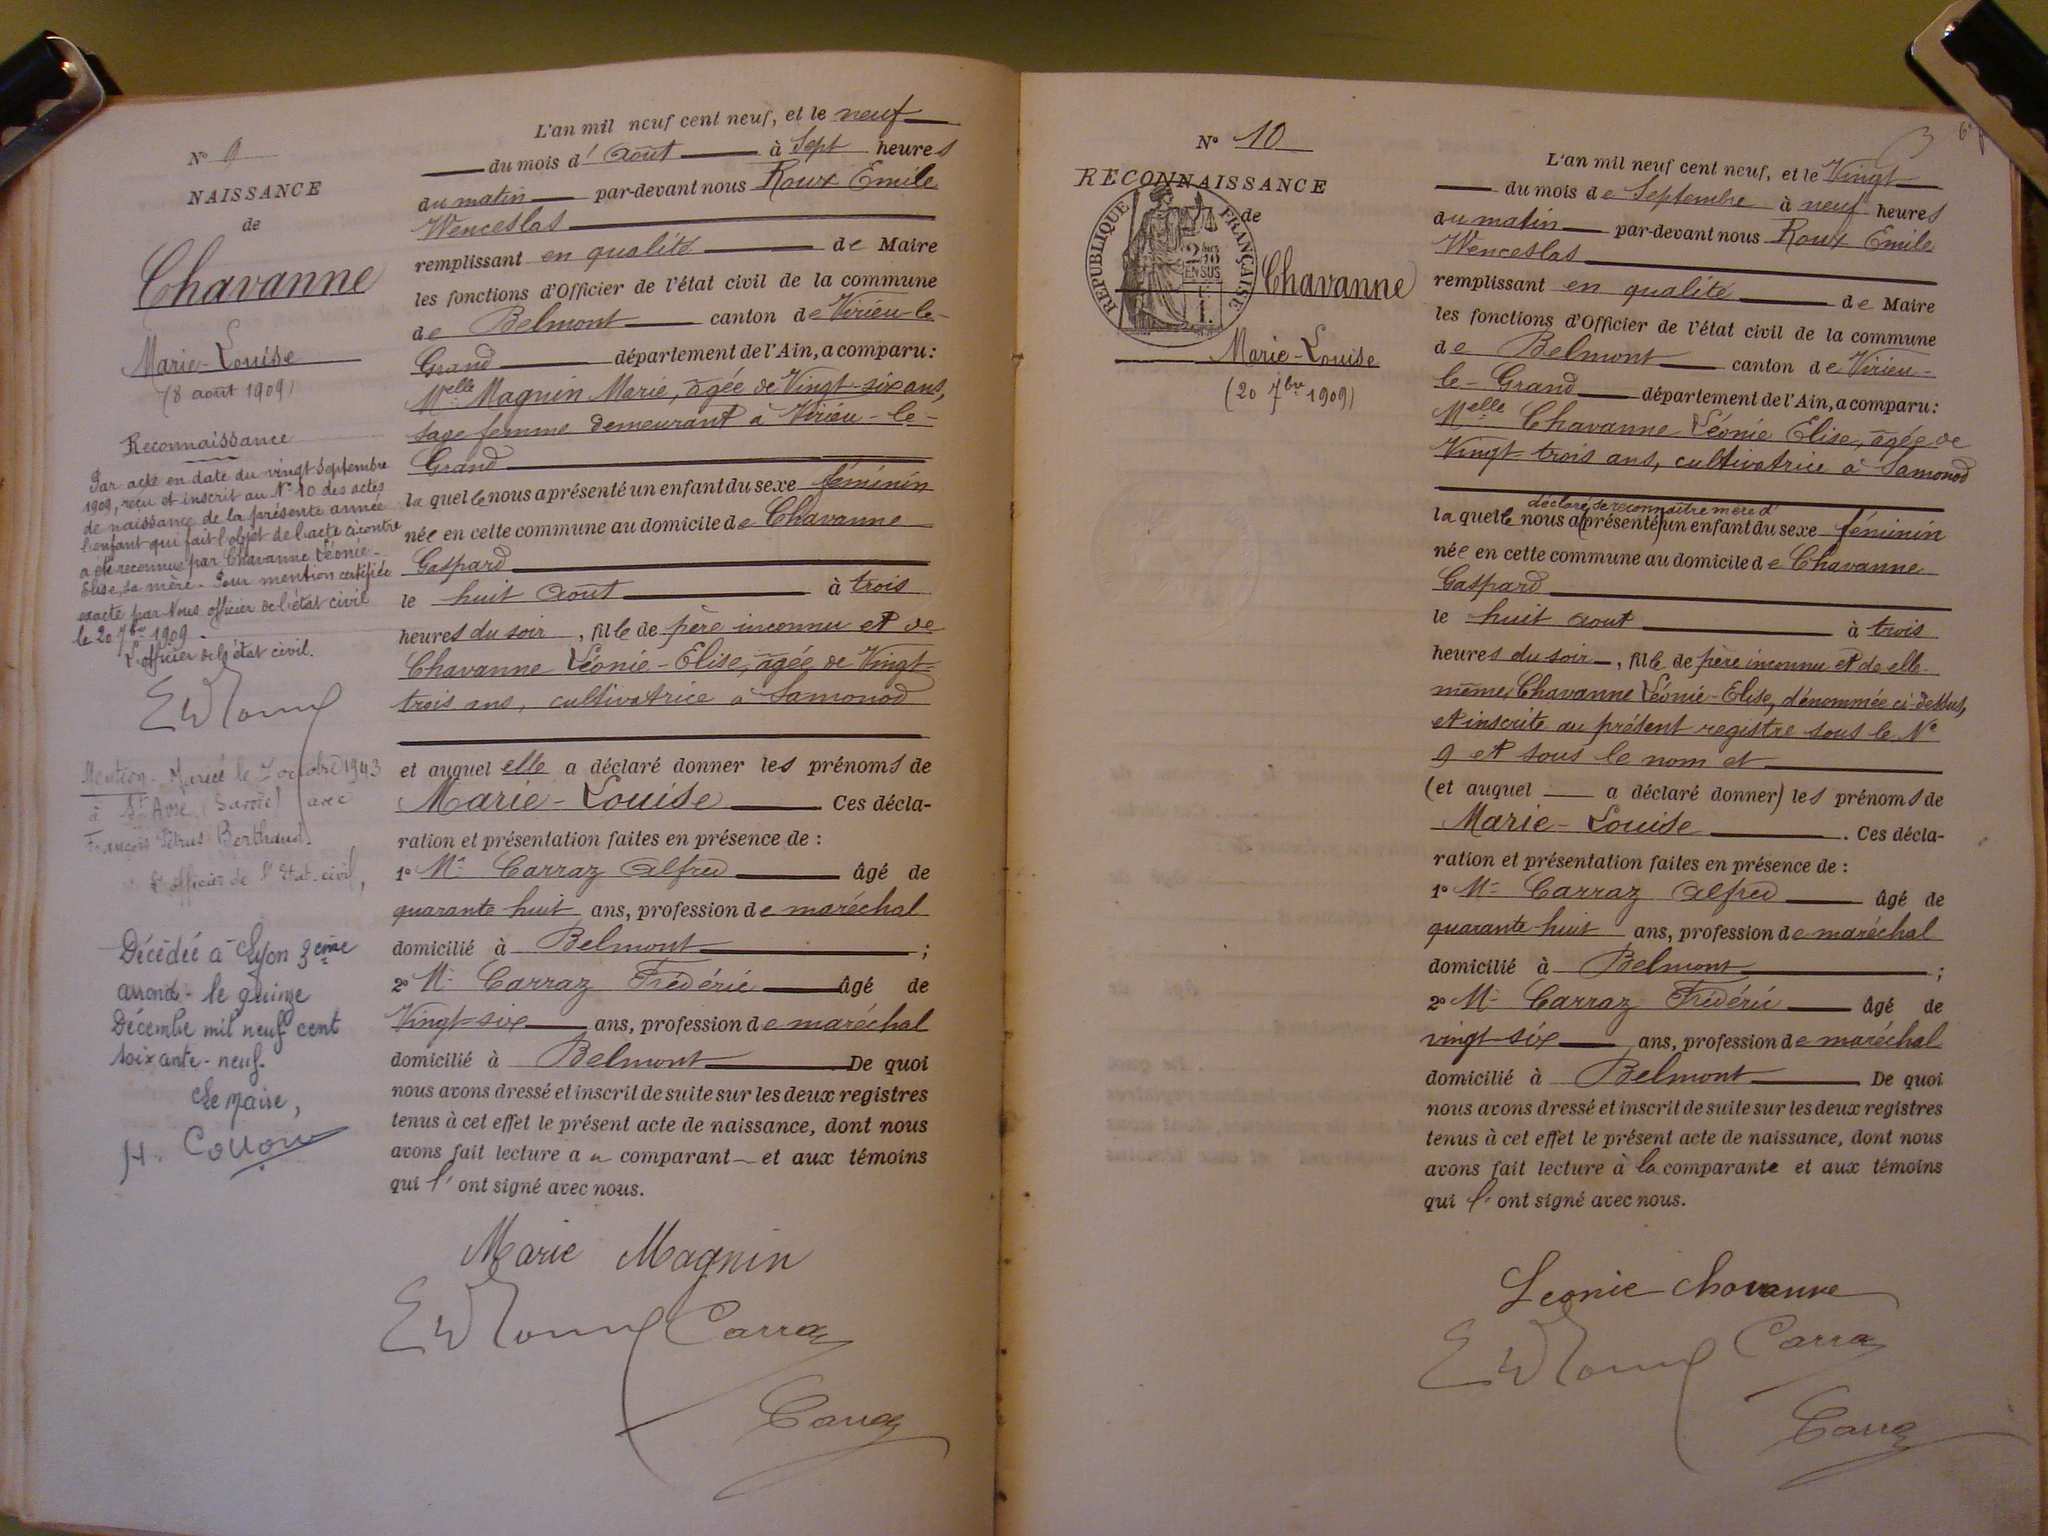 N° 9
NAISSANCE
de
Chavanne
Marie-Louise
(8 août 1909)
Reconnaissance
Par acte en date du vingt Septembre
1909, reçu et inscrit au N° 10 des actes
de naissance de la présente année
l'enfant qui fait l'objet de l'acte ci-contre
a été reconnue par Chavanne Léonie-
Elise, sa mère. Pour mention certifiée
exacte par Nous officier de l'état civil
le 20 7bre 1909.
L'officier de l'état civil.
Mention - Mariée le 7 octobre 1943
à St Avre (Savoie) avec
François Pétrus Berthaud.
L'officier de l'Etat-civil,
Décédée à Lyon 3eme
arrond- le quinze
Décembre mil neuf cent
soixante-neuf.
Le Maire,
L'an mil neuf cent neuf, et le neuf
du mois d' août à Sept heures
du matin par-devant nous Roux Emile
Wenceslas
remplissant en qualité de Maire
les fonctions d'Officier de l'état civil de la commune
de Belmont canton de Virieu-le-
Grand département de l'Ain, a comparu:
Melle Magnin Marie, âgée de Vingt-six ans,
sage femme demeurant à Virieu-le-
Grand
la quelle nous a présenté un enfant du sexe féminin
née en cette commune au domicile de Chavanne
Gaspard
le huit août à trois
heures du soir, fille de père inconnu et de
Chavanne Léonie-Elise, âgée de Vingt-
trois ans, cultivatrice à Samonod
et auquel elle a déclaré donner les prénoms de
Marie-Louise Ces décla-
ration et présentation faites en présence de :
1° Mr Carraz Alfred âgé de
quarante huit ans, profession de maréchal
domicilié à Belmont ;
2° Mr Carraz Frédéric âgé de
Vingt-six ans, profession de maréchal
domicilié à Belmont De quoi
nous avons dressé et inscrit de suite sur les deux registres
tenus à cet effet le présent acte de naissance, dont nous
avons fait lecture a u comparant et aux témoins
qui l' ont signé avec nous.
Marie Magnin
Carraz
Carraz
N° 10
RECONNAISSANCE
de
REPUBLIQUE FRANÇAISE
Chavanne
Marie-Louise
(20 7bre 1909)
L'an mil neuf cent neuf, et le Vingt
du mois de Septembre à neuf heures
du matin par-devant nous Roux Emile
Wenceslas
remplissant en qualité de Maire
les fonctions d'Officier de l'état civil de la commune
de Belmont canton de Virieu-
le-Grand département de l'Ain, a comparu:
Melle Chavanne Léonie Elise, âgée de
Vingt-trois ans, cultivatrice à Samonod
déclaré se reconnaître mère d'
la quelle nous a (présenté) un enfant du sexe féminin
née en cette commune au domicile de Chavanne
Gaspard
le huit aout à trois
heures du soir, fille de père inconnu et de elle-
même, Chavanne Léonie-Elise, dénommée ci-dessus,
et inscrite au présent registre sous le N°
9 et sous le nom et
(et auquel a déclaré donner) les prénoms de
Marie-Louise . Ces décla-
ration et présentation faites en présence de :
1° Mr Carraz Alfred âgé de
quarante-huit ans, profession de maréchal
domicilié à Belmont ;
2° Mr Carraz Frédéric âgé de
vingt-six ans, profession de maréchal
domicilié à Belmont De quoi
nous avons dressé et inscrit de suite sur les deux registres
tenus à cet effet le présent acte de naissance, dont nous
avons fait lecture à la comparante et aux témoins
qui l' ont signé avec nous.
Leonie Chavanne
Carraz
Carraz